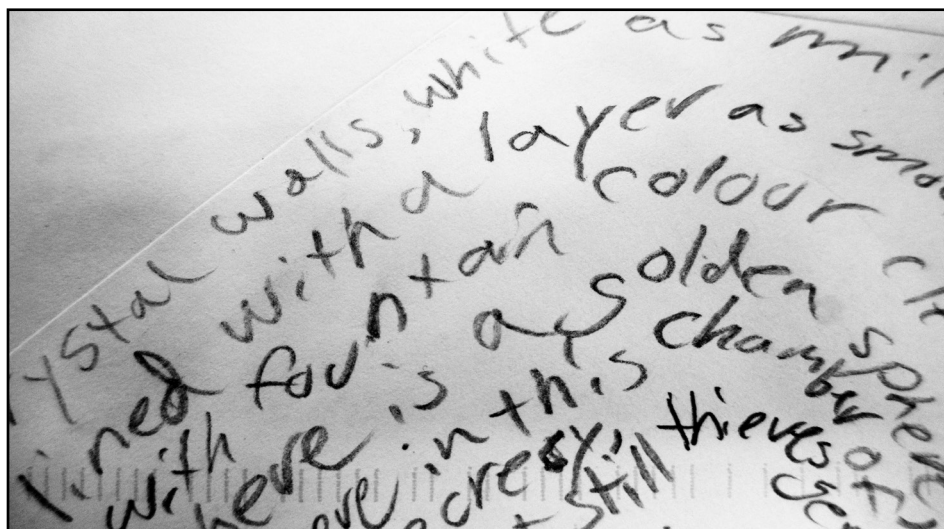 ystal walls, white as mil
lined with a layer as smo
with fountain colour cle
here is a golden sphere
ere in this chamber of
ecrecy;
t still thieves ge